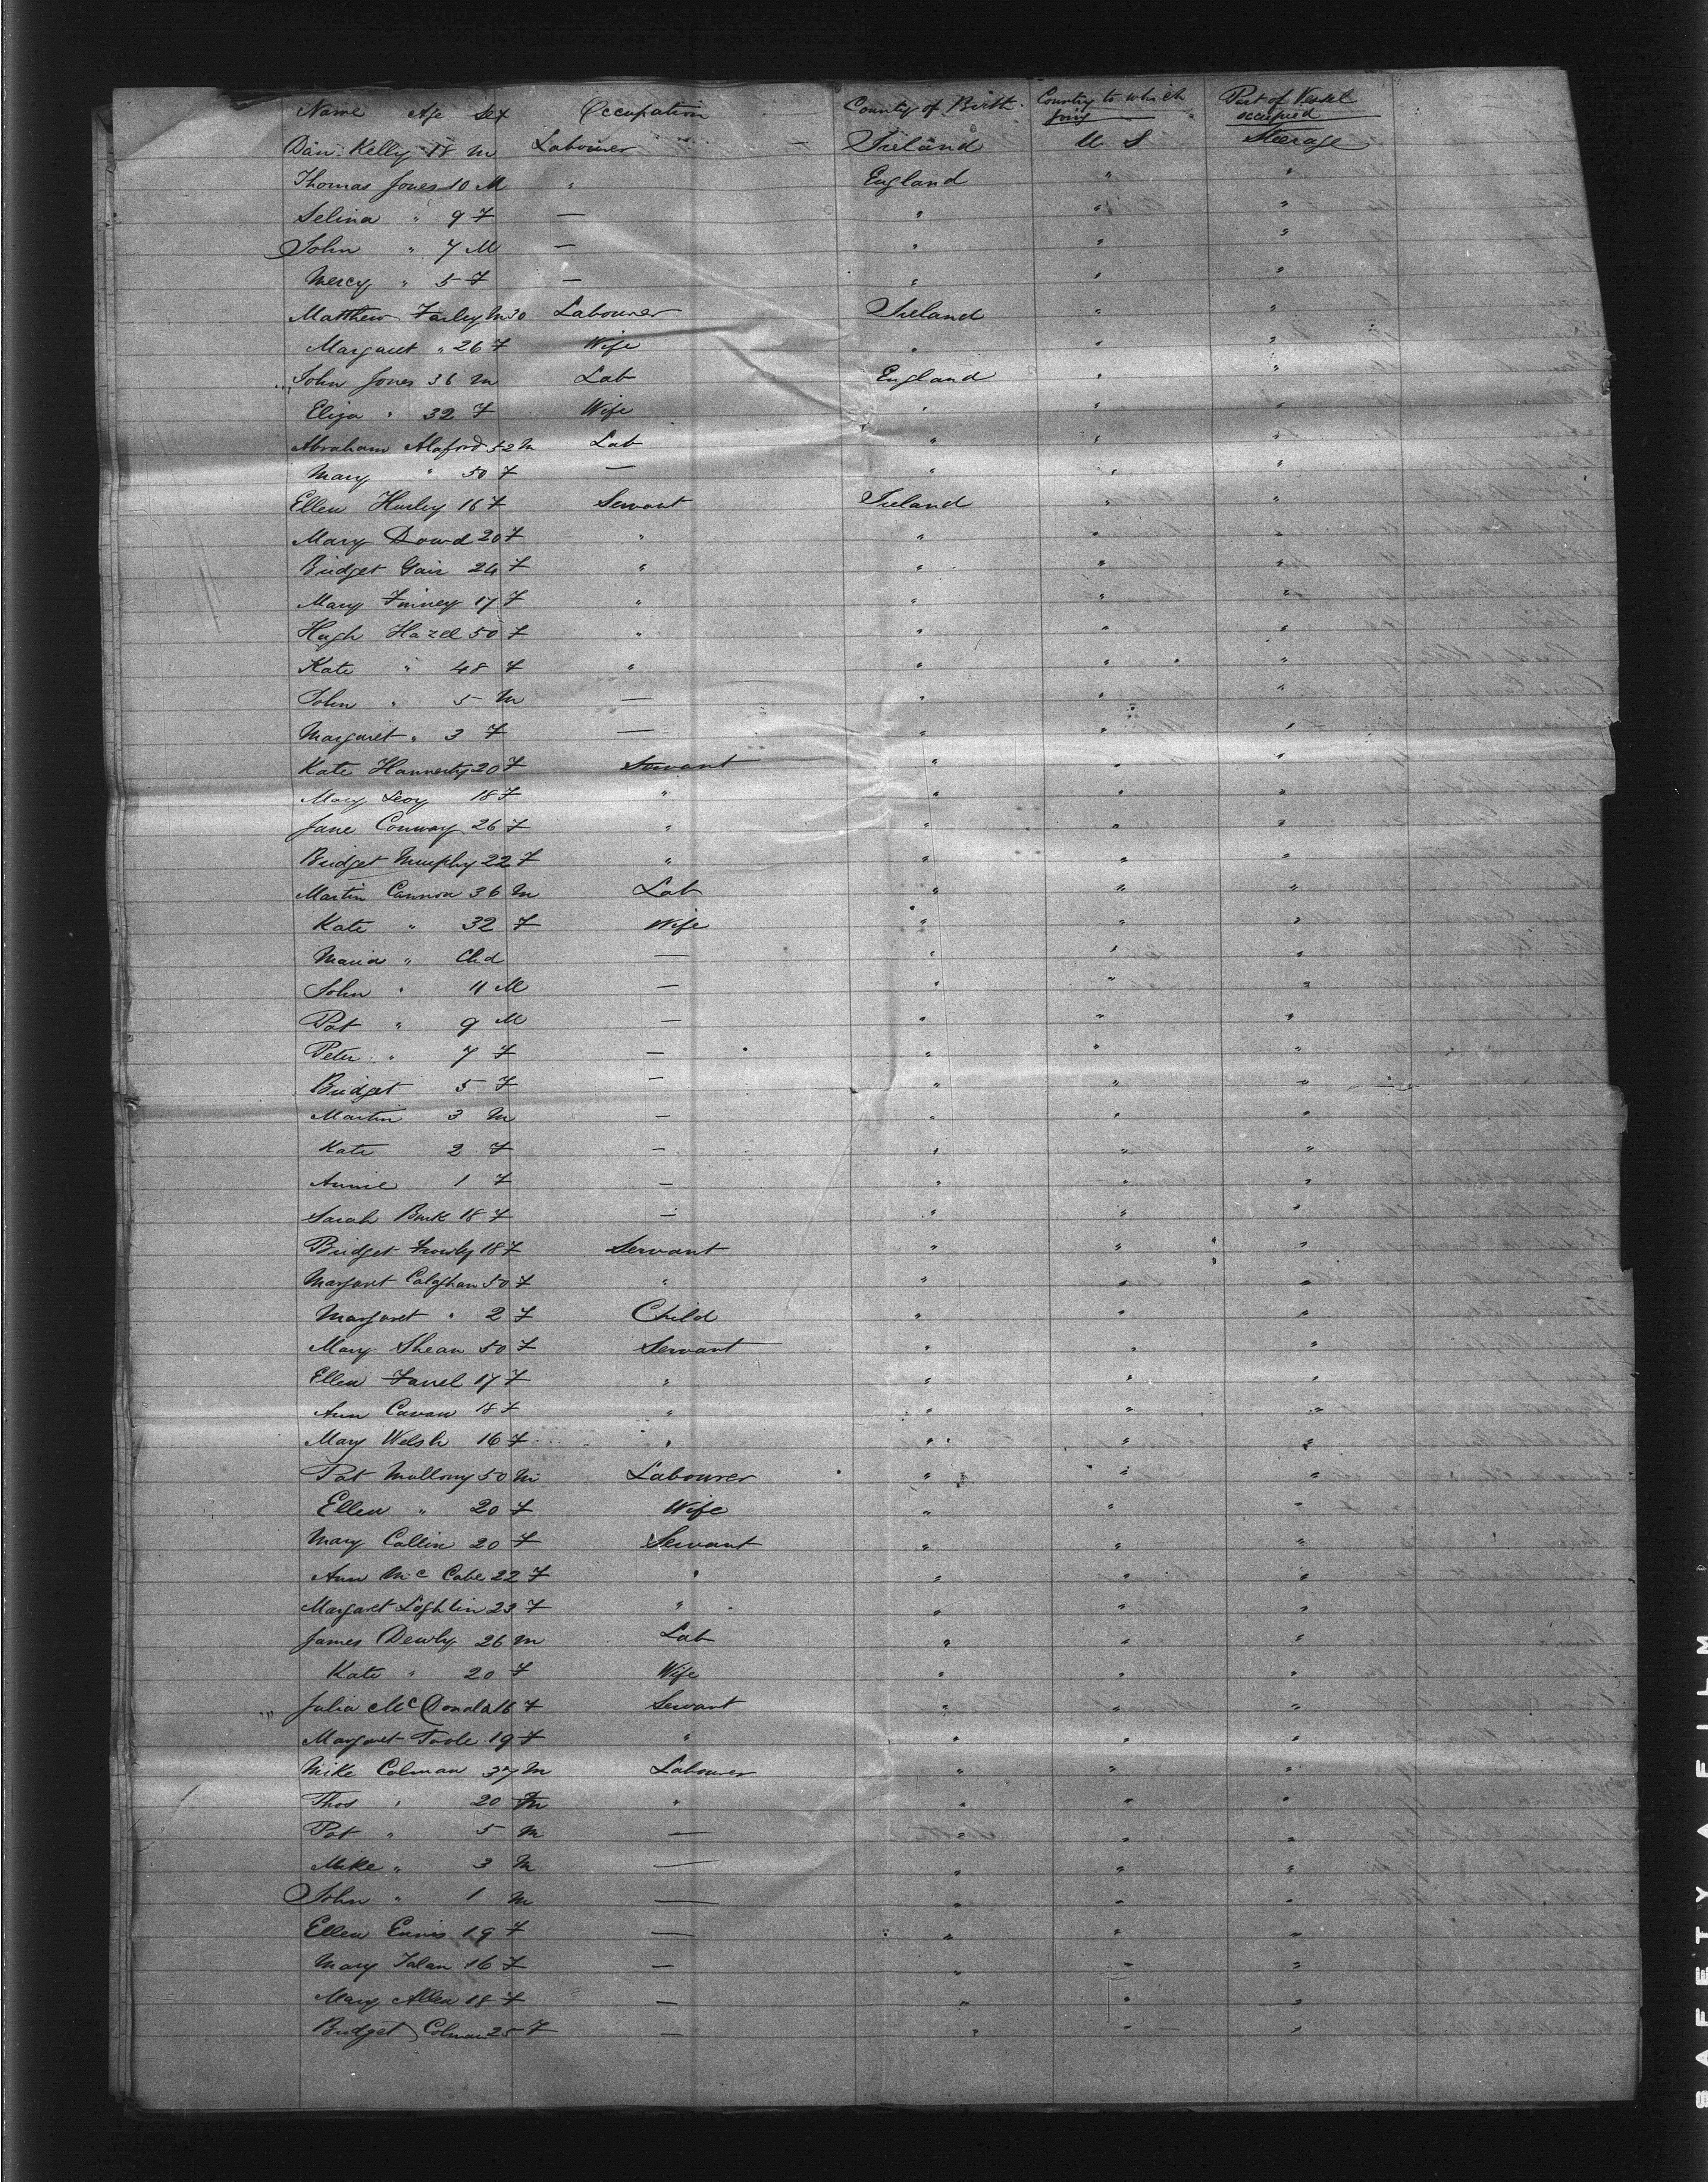 Name Age Sex Occupation County of Birth Country to which going Part of Vessel occupied
Dan. Kelly 18 M Labourer — Ireland U S Steerage
Thomas Jones 10 M " England " "
Selina " 9 F — " " "
John " 7 M — " " "
Mercy " 5 F — " " "
Matthew Farley M 30 Labourer Ireland " "
Margaret " 26 F Wife " " "
John Jones 36 M Lab England " "
Eliza " 32 F Wife " " "
Abraham 52 M Lab " " "
Mary " 50 F — " " "
Ellen Hurley 16 F Servant Ireland " "
Mary Dowd 20 F " " " "
Bridget 24 F " " " "
Mary 17 F " " " "
Hugh Hazel 50 F " " " "
Kate " 48 F " " " "
John " 5 M — " " "
Margaret " 3 F — " " "
Kate 20 F Servant " " "
Mary 18 F " " " "
Jane Conway 26 F " " " "
Bridget Murphy 22 F " " " "
Martin Cannon 36 M Lab " " "
Kate " 32 F Wife " " "
Maria " Chd — " " "
John " 11 M — " " "
Pat " 9 M — " " "
Peter " 7 F — " " "
Bridget 5 F — " " "
Martin 3 M — " " "
Kate 2 F — " " "
Annie 1 F — " " "
Sarah Burk 18 F — " " "
Bridget 18 F Servant " " "
Margaret Calaghan 50 F " " " "
Margaret " 2 F Child " " "
Mary Shean 50 F Servant " " "
Ellen Farrel 17 F " " " "
Ann Cavan 18 F " " " "
Mary Welsh 16 F " " " "
Pat Mullony 50 M Labourer " " "
Ellen " 20 F Wife " " "
Mary Collin 20 F Servant " " "
Ann Mc Cabe 22 F " " " "
Margaret Loghlin 23 F " " " "
James 26 M Lab " " "
Kate " 20 F Wife " " "
Julia McDonald 16 F Servant " " "
Margaret Toole 19 F " " " "
Mike Colman 37 M Labourer " " "
Thos " 20 M " " " "
Pat " 5 M — " " "
Mike " 3 M — " " "
John " 1 M — " " "
Ellen Ennis 19 F — " " "
Mary 16 F — " " "
Mary Allen 18 F — " " "
Bridget Colman 25 F — " " "
SAFETY FILM